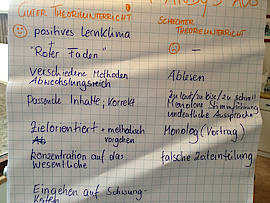 GUTER THEORIEUNTERRICHT!
SCHLECHTER
THEORIEUNTERRICHT
positives Lernklima
"Roter Faden"
–
verschiedene Methoden
Abwechslungsreich
Ablesen
Passende Inhalte, Korrekt
zu laut/zu leise/zu schnell
Monotone Stimm
undeutliche Aussprache
Zielorientiert + methodisch
vorgehen
Monolog (Vortrag)
Konzentration auf das
Wesentliche
falsche Zeiteinteilung
Eingehen auf Schwung-